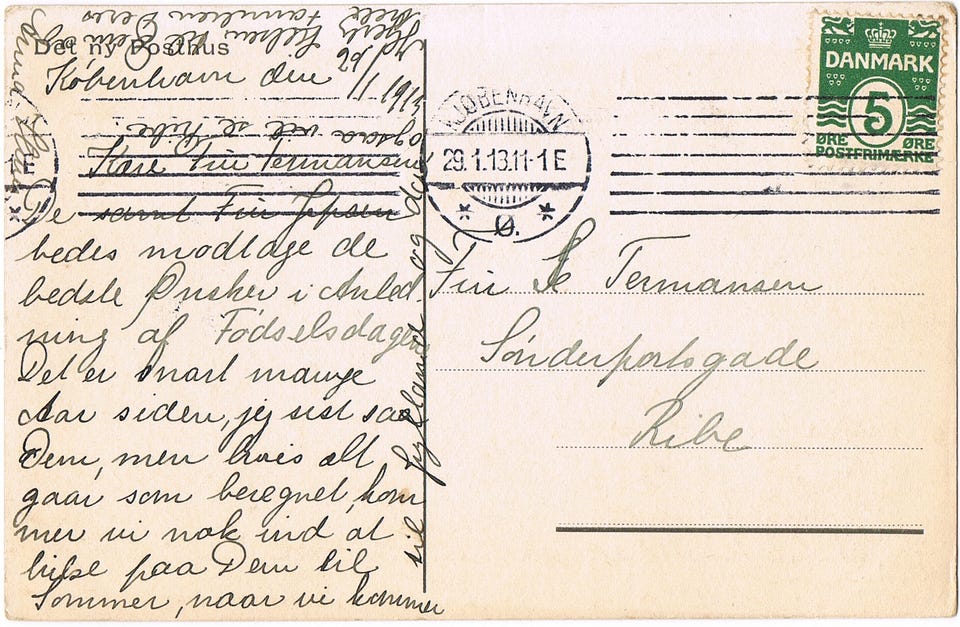 Det ny Posthus
København den 29/1 1913
Kære Frk Termansen
De samt Frk Jepsen
bedes modtage de
bedste Ønsker i Anled
ning af Fødselsdagen
Det er snart mange
Aar siden, jeg sist saa
Dem, men hvis alt
gaar som beregnet, kom
mer vi nok ind at
hilse paa Dem til
Sommer, naar vi kommer
til Jylland og da
ogsaa vil se Ribe
Hilsen til Dem
familien Deres
KJØBENHAVN
29.1.13.11-1 E
Ø.
DANMARK
5
ØRE ØRE
POSTFRIMÆRKE
Termansen
Sønderportsgade
Ribe